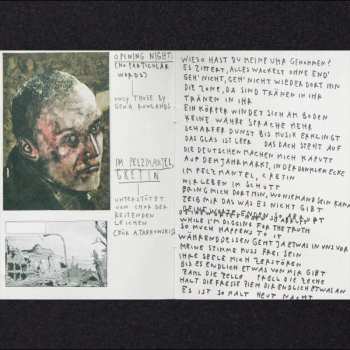 OPENING NIGHT:
(NO PARTICULAR
WORDS)
ONLY THOSE BY
GENA ROWLANDS.
IM PELZMANTEL,
CRETIN
UNTERSTÜTZT
VOM CHOR DER
REITENDEN
LEICHEN
(FÜR A. TARKOWSKI)
WIESO HAST DU MEINE UHR GENOMMEN?
ES ZITTERT, ALLES WACKELT OHNE END'
GEH' NICHT, GEH' NICHT WIEDER DORT HIN
DIE ZONE, DA SIND TRÄNEN IN IHR
TRÄNEN IN IHR
EIN KÖRPER WINDET SICH AM BODEN
KEINE WAHRE SPRACHE MEHR
SCHARFER DUNST BIS MUSIK ERKLINGT
DAS GLAS IST LEER DAS DACH STEHT AUF
DIE DEUTSCHEN MACHEN MICH KAPUTT
AUF DEM JAHRMARKT, IN DER DUNKLEN ECKE
IM PELZMANTEL, CRETIN
WIR LEBEN IM SCHOTT
BRING MICH DORT HIN, WO NIEMAND SEIN KANN
ZEIG MIR DAS WAS ES NICHT GIBT
WHILE I'M DIGGING FOR THE TRUTH
SO MUCH HAPPENS TO IT
WÄHRENDDESSEN GEHT JA ETWAS IN UNS VOR
MEINE STIMME MUSS FREI SEIN
IHRE SEELE MICH ZERSTÖREN
BIS ES ENDLICH ETWAS VON MIR GIBT
ZAHL DIE ZELLE PRELL DIE ZECHE
HALT DIE FRESSE ZIEH DIR ENDLICH ETWAS AN
ES IST SO KALT HEUT NACHT